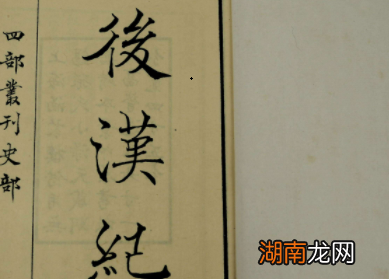 四部叢刊史部
後漢紀
湖南龙网